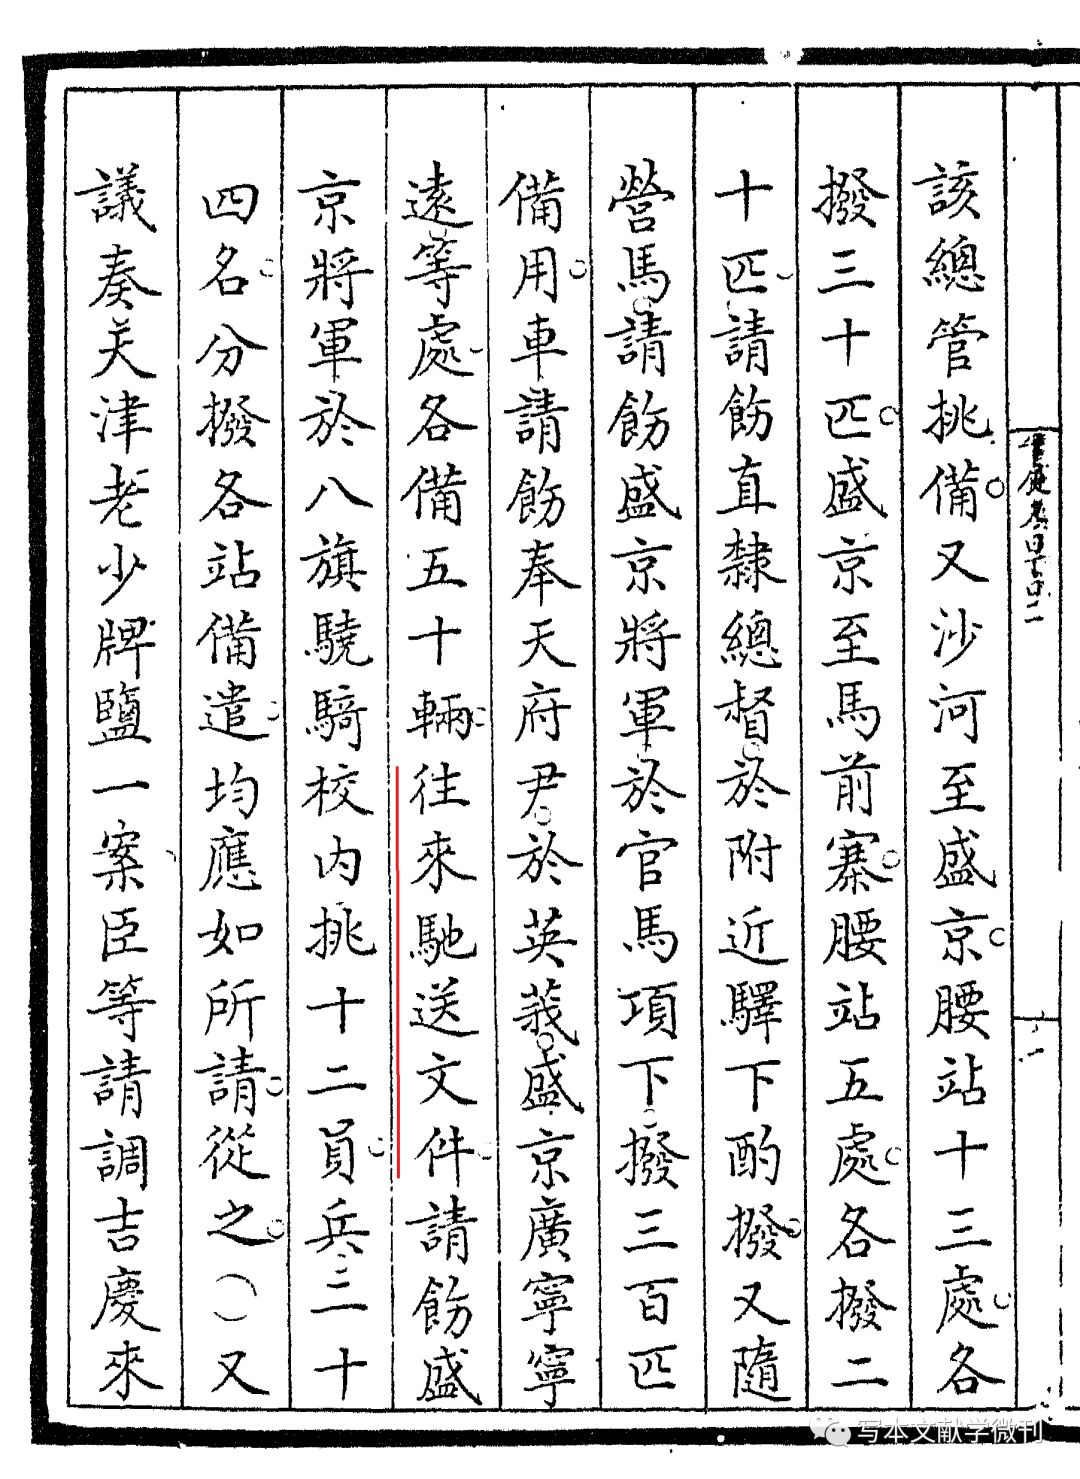 該總管挑備又沙河至盛京腰站十三處各
撥三十匹盛京至馬前寨腰站五處各撥二
十匹請飭直隸總督於附近驛下酌撥又隨
營馬請飭盛京將軍於官馬項下撥三百匹
備用車請飭奉天府尹於英莪盛京廣寧寧
遠等處各備五十輛往來馳送文件請飭盛
京將軍於八旗驍騎校內挑十二員兵二十
四名分撥各站備遣均應如所請從之〇又
議奏天津老少牌鹽一案臣等請調吉慶來
写本文献学微刊